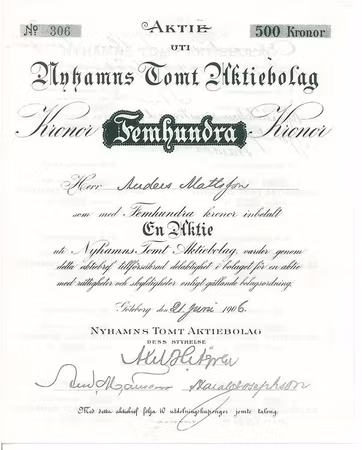 No 306 AKTIE 500 Kronor
UTI
Nyhamns Tomt Aktiebolag
Kronor Femhundra Kronor
Herr Anders Mattsson
som med Femhundra kronor inbetalt
En Aktie
uti Nyhamns Tomt Aktiebolag, varder genom
detta aktiebref tillförsäkrad delaktighet i bolaget för en aktie
med rättigheter och skyldigheter enligt gällande bolagsordning.
Göteborg den 21 Juni 1906
NYHAMNS TOMT AKTIEBOLAG
DESS STYRELSE
Axel
Harald Josephson
Med detta aktiebref följa 10 utdelningskuponger jemte talong.